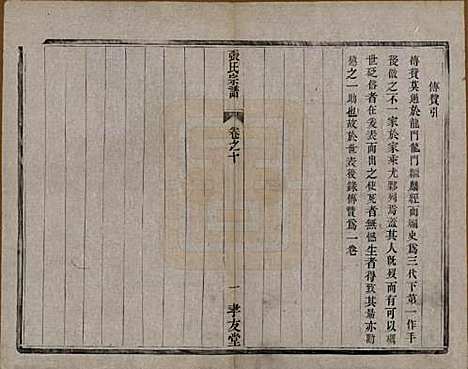 傳贊引
傳贊莫過於龍門龍門繼麟經而編史爲三代下第一作手
後倣之不一家於家乘尤夥列焉蓋其人旣歿而有可以礪
世砭俗者在爰表而出之使死者無憾生者得致其勗亦勸
懲之一助也故於世表後錄傳贊爲一卷
張氏宗譜
卷之十
一
孝友堂